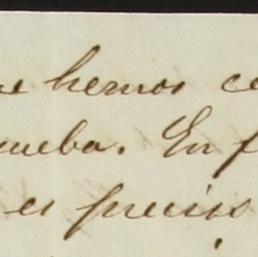 hemos
ueba. En f
es preciso